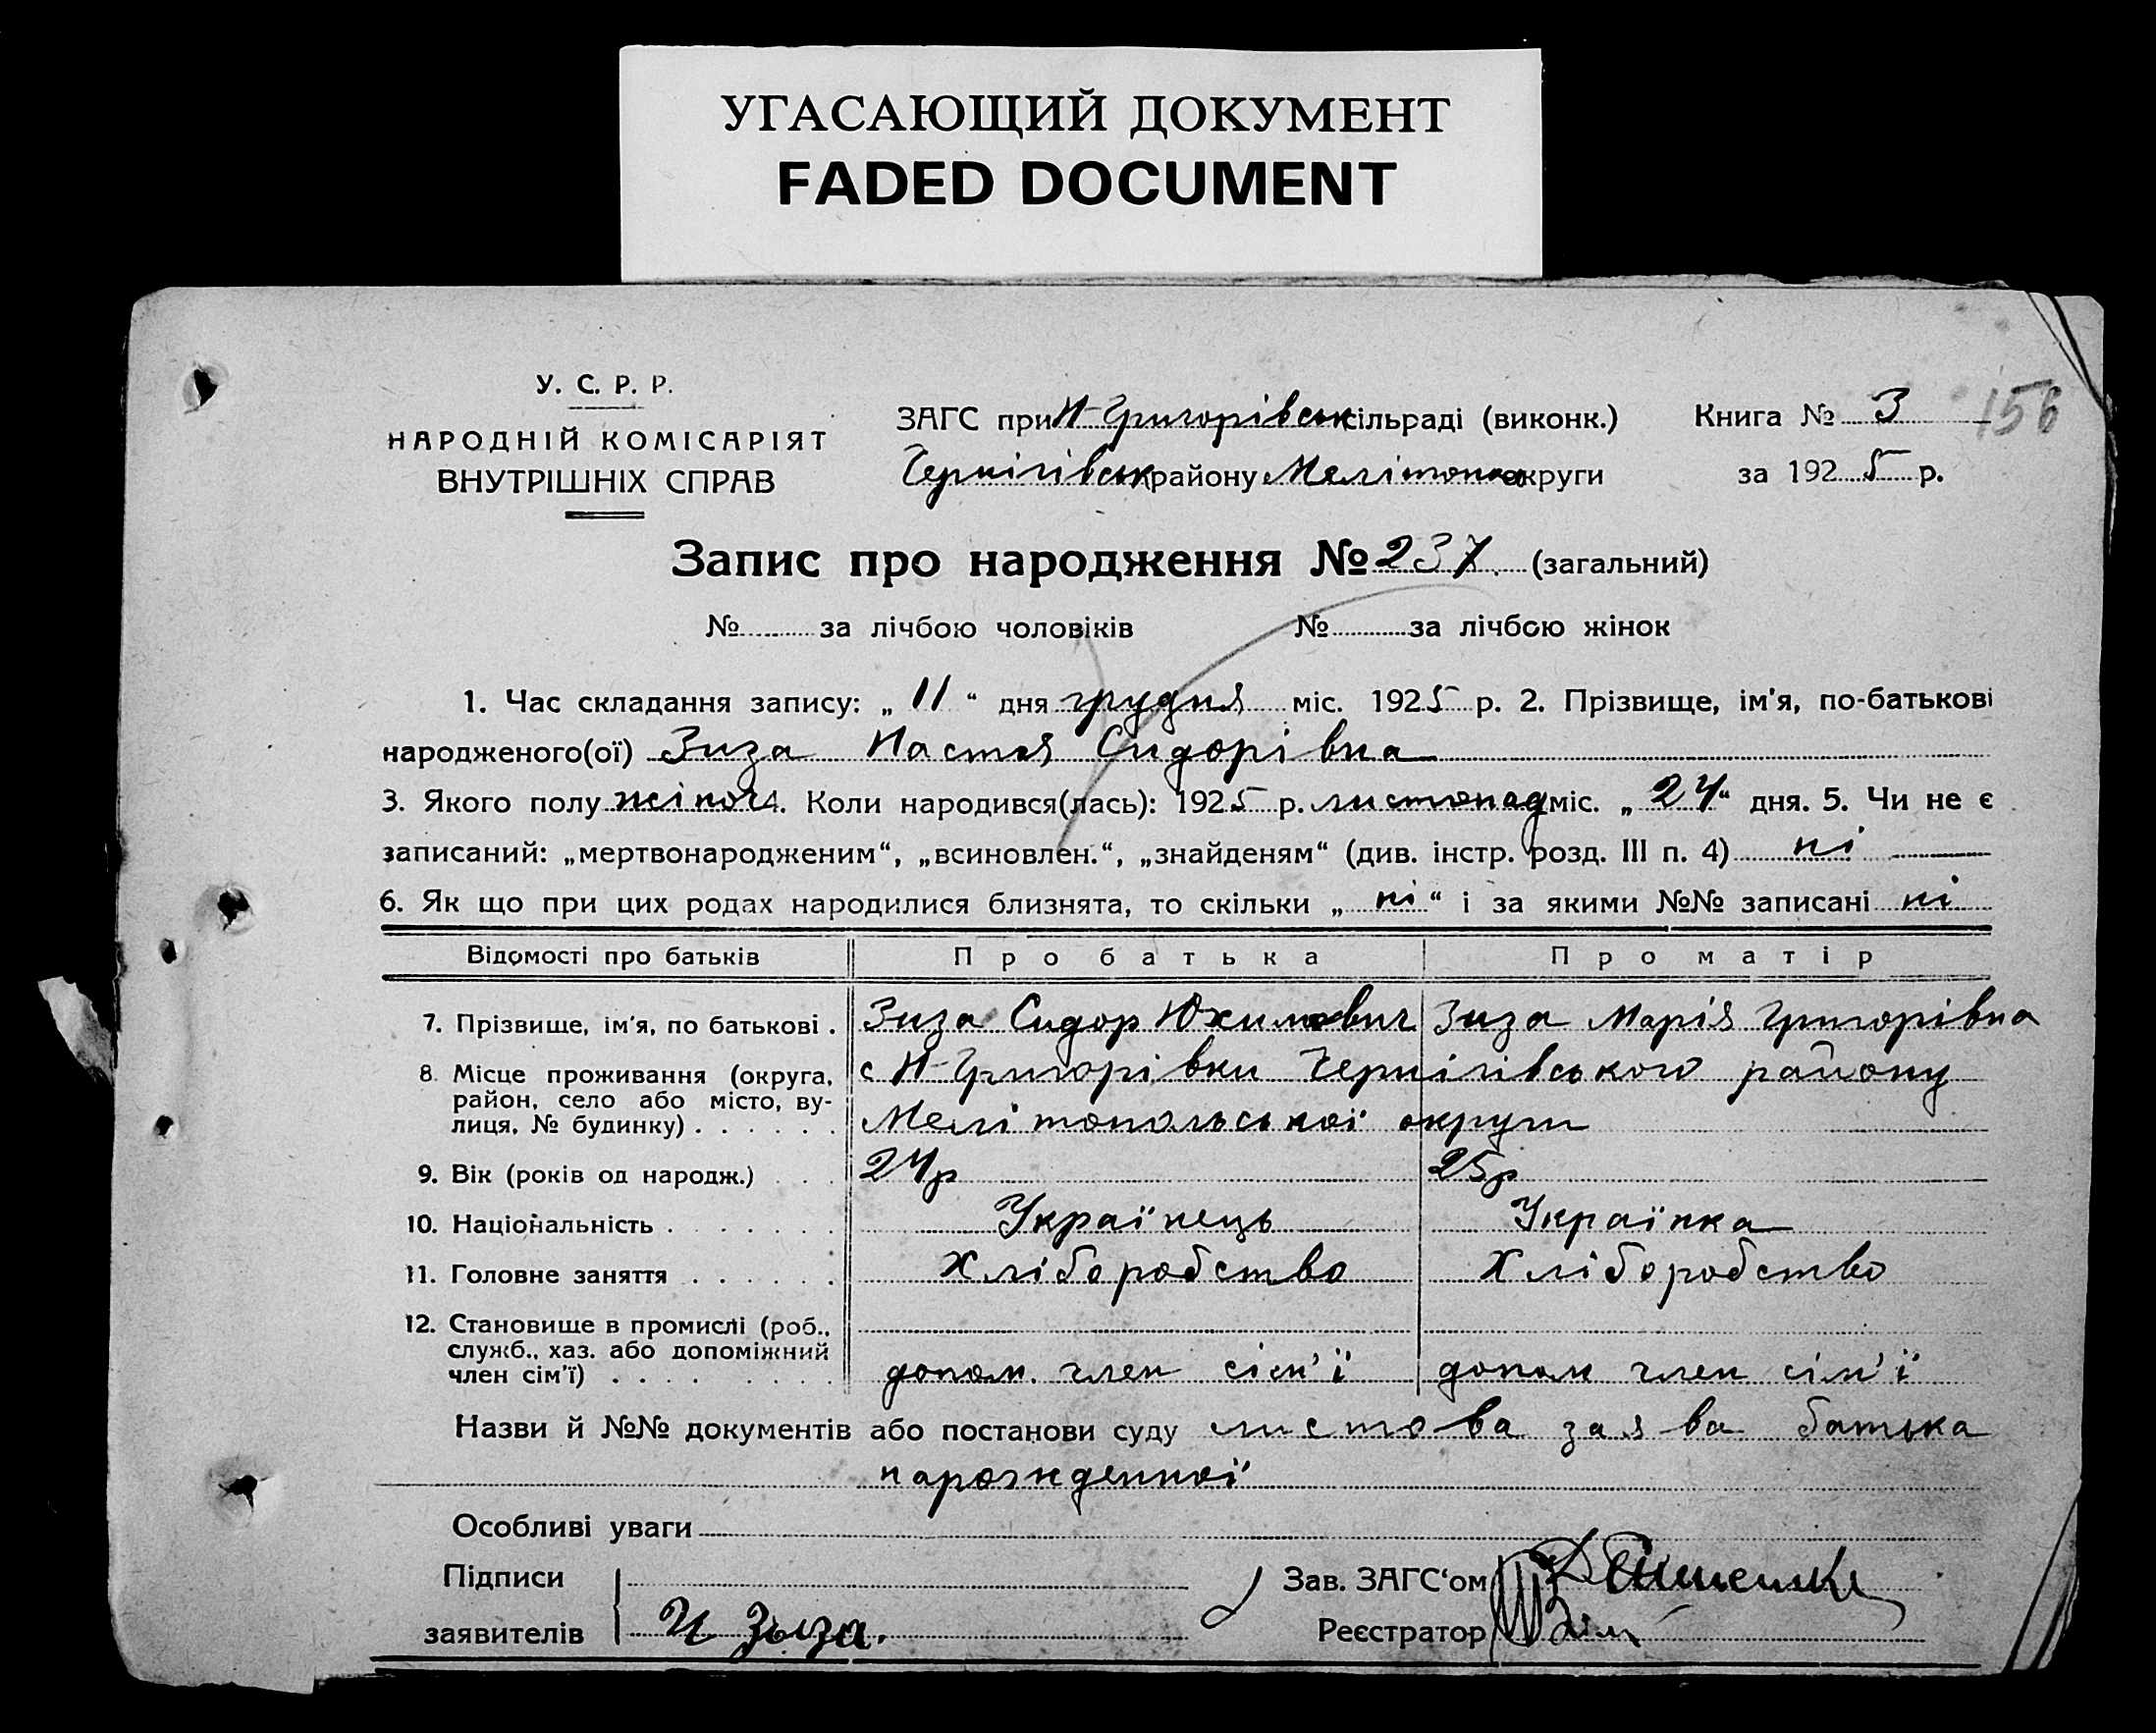 УГАСАЮЩИЙ ДОКУМЕНТ
FADED DOCUMENT
156
У. С. Р. Р.
НАРОДНІЙ КОМІСАРІЯТ
ВНУТРІШНІХ СПРАВ
ЗАГС при Н-Григорівськ сільраді (виконк.)
Чернігівськ району Мелітопол округи
Книга № 3
за 1925 р.
Запис про народження № 237 (загальний)
№ за лічбою чоловіків № за лічбою жінок
1. Час складання запису: „ 11 “ дня грудня міс. 1925 р. 2. Прізвище, ім'я, по-батькові
народженого(ої) Зиза Настя Сидорівна
3. Якого полу жіноч 4. Коли народився(лась): 1925 р. листопад міс. „ 24 “ дня. 5. Чи не є
записаний: „мертвонародженим“, „всиновлен.“, „знайденям“ (див. інстр. розд. III п. 4) ні
6. Як що при цих родах народилися близнята, то скільки „ ні “ і за якими №№ записані ні
Відомості про батьків Про батька Про матір
7. Прізвище, ім'я, по батькові . Зиза Сидор Юхимович Зиза Марія Григорівна
8. Місце проживання (округа, район, село або місто, вулиця, № будинку) . . . . . . с Н-Григорівки Чернігівського району
Мелітопольської округи
9. Вік (років од народж.) . . . 24р 25р
10. Національність . . . . . . Українець Українка
11. Головне заняття . . . . . . Хліборобство Хліборобство
12. Становище в промислі (роб., служб., хаз. або допоміжний член сім'ї) . . . . . . . . допом. член сім'ї допом член сім'ї
Назви й №№ документів або постанови суду листова заява батька
нарожденної
Особливі уваги
Підписи
заявителів И Зыза.
Зав. ЗАГС‘ом
Реєстратор